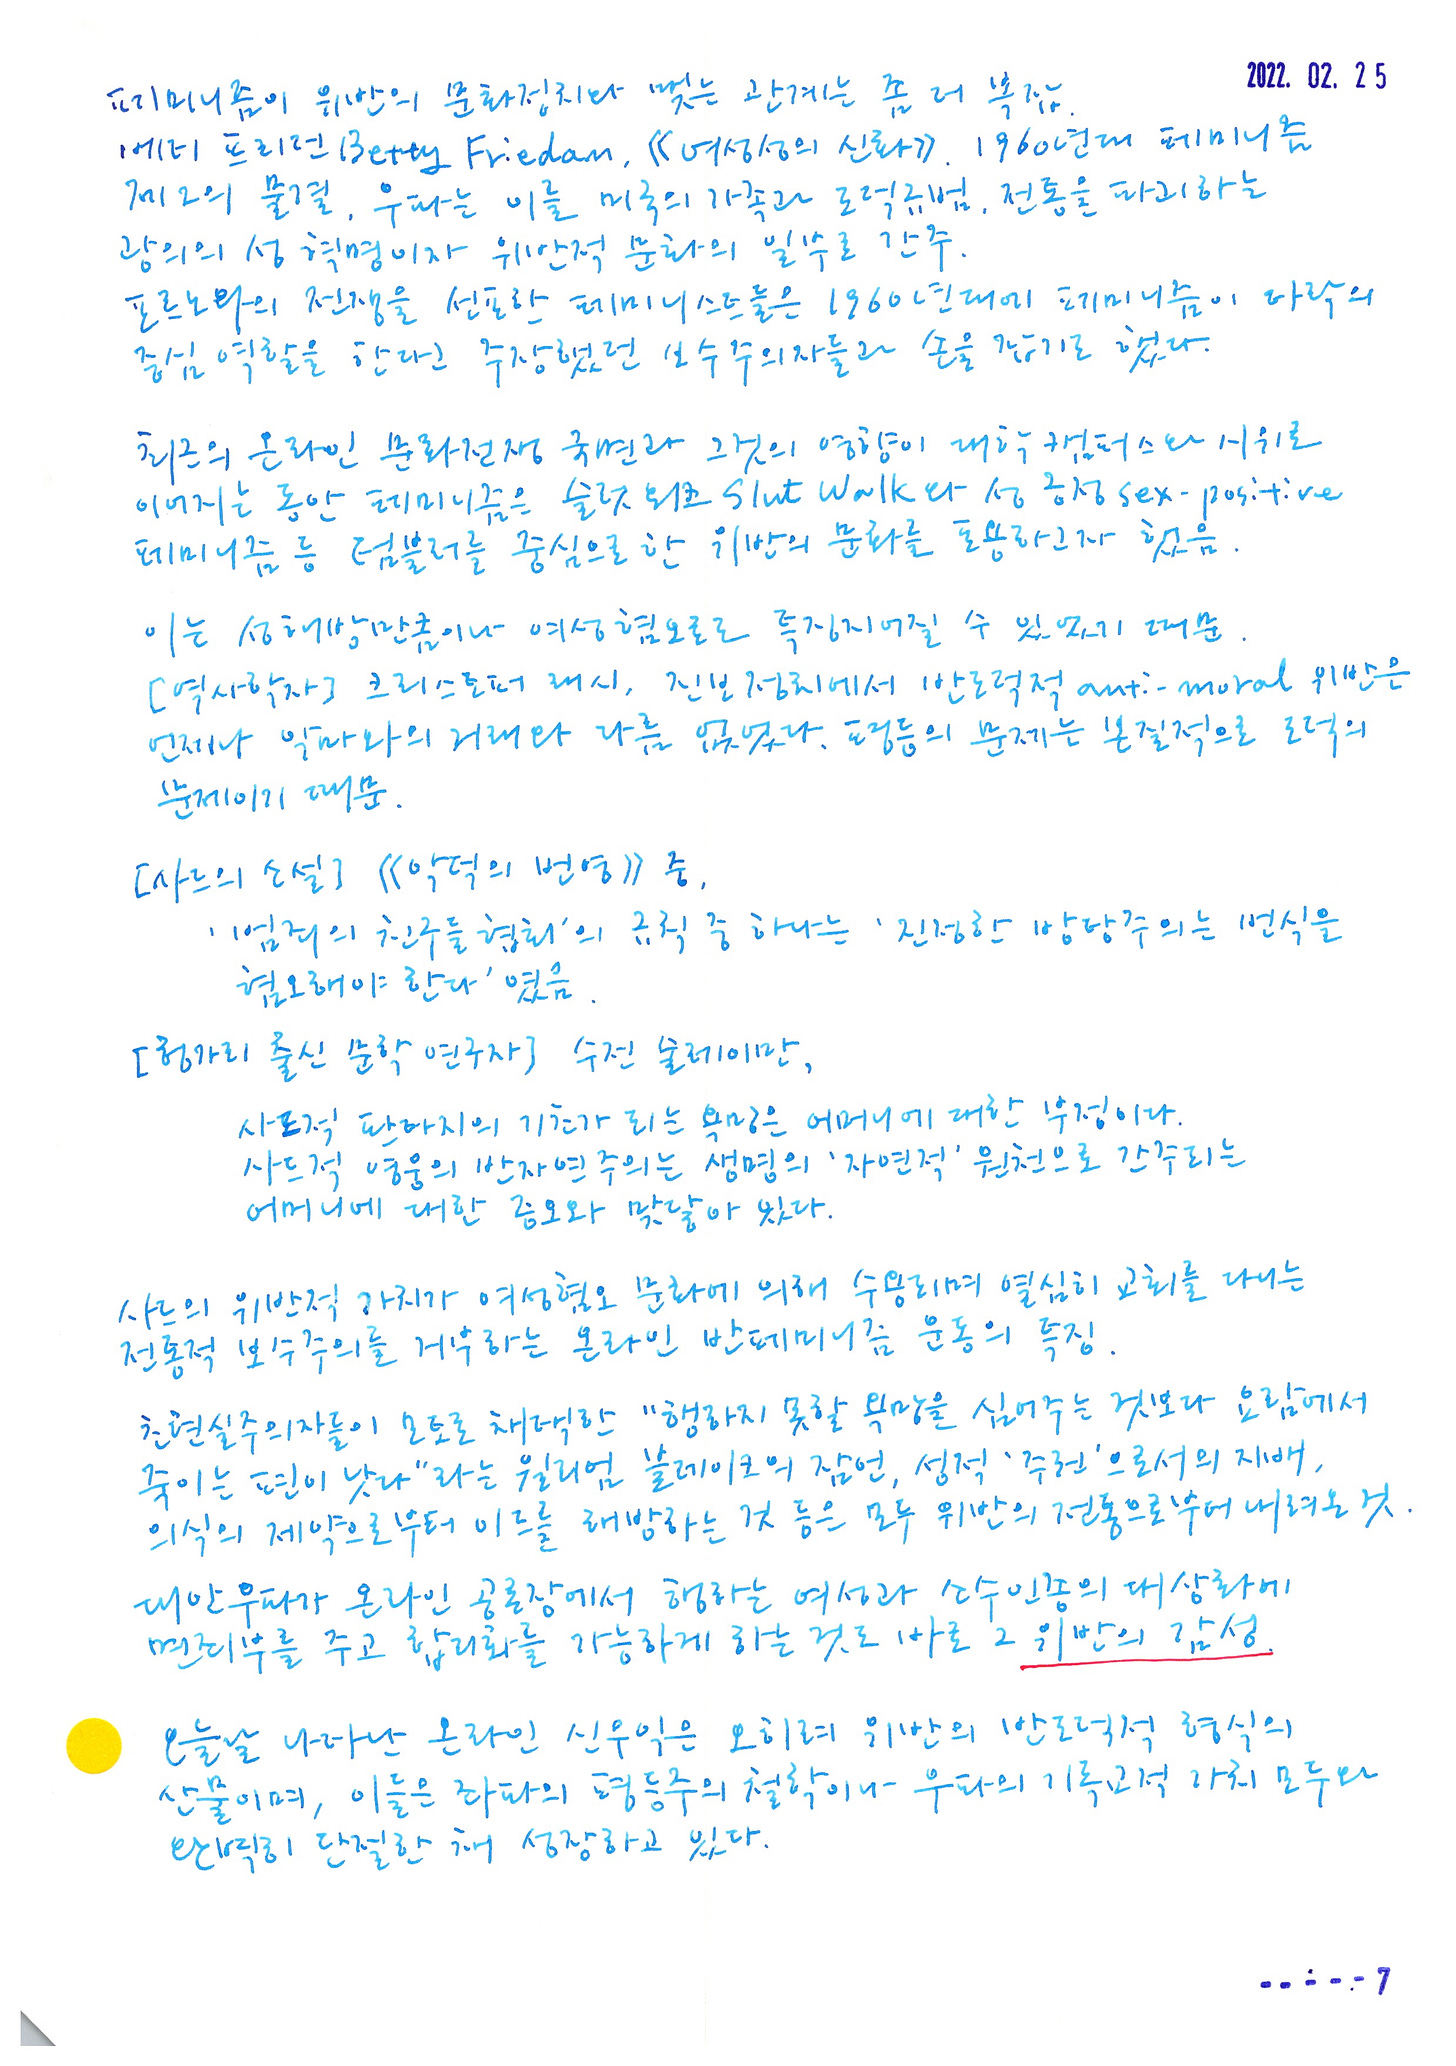 2022. 02. 25
페미니즘이 위반의 문화정치와 맺는 관계는 좀 더 복잡.
베티 프리던 Betty Friedan, 《여성성의 신화》. 1960년대 페미니즘
제2의 물결. 우파는 이를 미국의 가족과 도덕규범, 전통을 파괴하는
광의의 성 혁명이자 위반적 문화의 일부로 간주.
포르노와의 전쟁을 선포한 페미니스트들은 1960년대에 페미니즘이 타락의
중심 역할을 한다고 주장했던 보수주의자들과 손을 잡기로 했다.
최근의 온라인 문화전쟁 국면과 그것의 영향이 대학 캠퍼스와 시위로
이어지는 동안 페미니즘은 슬럿워크 Slut Walk와 성 긍정 sex-positive
페미니즘 등 텀블러를 중심으로 한 위반의 문화를 포용하고자 했음.
이는 성해방만큼이나 여성혐오로도 특징지어질 수 있었기 때문.
[역사학자] 크리스토퍼 래시, 진보정치에서 반도덕적 anti-moral 위반은
언제나 악마와의 거래와 다름 없었다. 평등의 문제는 본질적으로 도덕의
문제이기 때문.
[사드의 소설] 《악덕의 번영》 중,
'범죄의 친구들 협회'의 규칙 중 하나는 '진정한 방탕주의는 번식을
혐오해야 한다' 였음.
[헝가리 출신 문학 연구자] 수전 술레이만,
사드적 판타지의 기초가 되는 욕망은 어머니에 대한 부정이다.
사드적 영웅의 반자연주의는 생명의 '자연적' 원천으로 간주되는
어머니에 대한 증오와 맞닿아 있다.
사드의 위반적 가치가 여성혐오 문화에 의해 수용되며 열심히 교회를 다니는
전통적 보수주의를 거부하는 온라인 반페미니즘 운동의 특징.
초현실주의자들이 모토로 채택한 "행하지 못할 욕망을 심어주는 것보다 요람에서
죽이는 편이 낫다"라는 윌리엄 블레이크의 잠언, 성적 '주권'으로서의 지배,
의식의 제약으로부터 이드를 해방하는 것 등은 모두 위반의 전통으로부터 내려온 것.
대안우파가 온라인 공론장에서 행하는 여성과 소수인종의 대상화에
면죄부를 주고 합리화를 가능하게 하는 것도 바로 그 위반의 감성.
오늘날 나타난 온라인 신우익은 오히려 위반의 반도덕적 형식의
산물이며, 이들은 좌파의 평등주의 철학이나 우파의 기독교적 가치 모두와
완벽히 단절한 채 성장하고 있다.
7